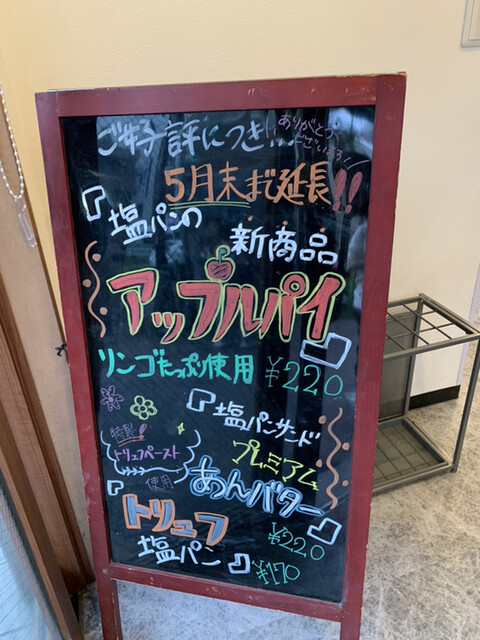 ご好評につき!!
ありがとう
ございます!
5月末まで延長!!
『塩パンの
新商品
アップルパイ』
リンゴたっぷり使用 ¥220
『塩パンサンド
プレミアム
あんバター』
¥220
特製!!
トリュフペースト
使用
『トリュフ
塩パン』
¥170